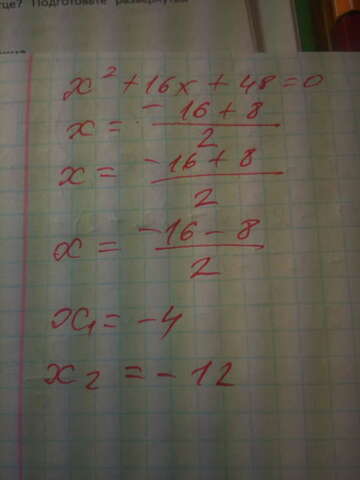 це? Подготовьте развернутый
x² + 16x + 48 = 0
x = -16 + 8 / 2
x = -16 + 8 / 2
x = -16 - 8 / 2
x₁ = -4
x₂ = -12